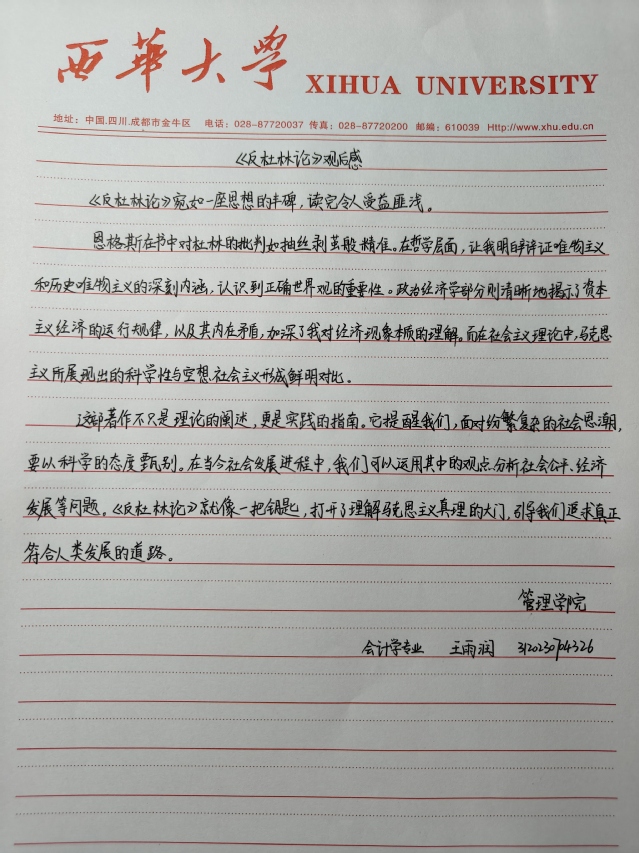 西华大学 XIHUA UNIVERSITY
地址：中国.四川.成都市金牛区 电话：028-87720037 传真：028-87720200 邮编：610039 Http://www.xhu.edu.cn
《反杜林论》观后感
《反杜林论》宛如一座思想的丰碑，读完令人受益匪浅。
恩格斯在书中对杜林的批判如抽丝剥茧般精准。在哲学层面，让我明白辩证唯物主义
和历史唯物主义的深刻内涵，认识到正确世界观的重要性。政治经济学部分则清晰地揭示了资本
主义经济的运行规律，以及其内在矛盾，加深了我对经济现象本质的理解。而在社会主义理论中，马克思
主义所展现出的科学性与空想社会主义形成鲜明对比。
这部著作不只是理论的阐述，更是实践的指南。它提醒我们，面对纷繁复杂的社会思潮，
要以科学的态度甄别。在当今社会发展进程中，我们可以运用其中的观点分析社会公平、经济
发展等问题。《反杜林论》就像一把钥匙，打开了理解马克思主义真理的大门，引导我们追求真正
符合人类发展的道路。
管理学院
会计学专业 王雨润 3120230704326